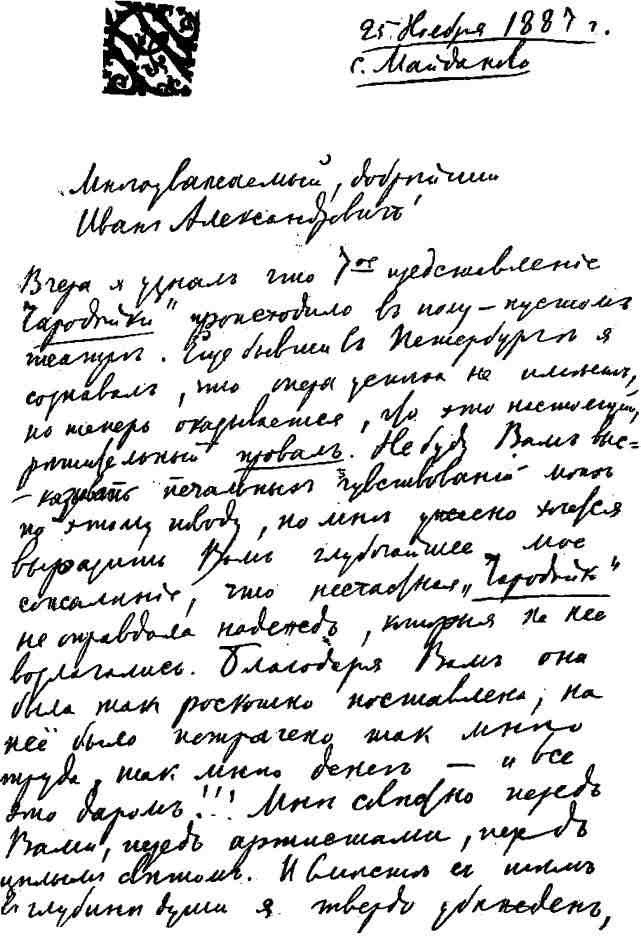 25 Ноября 1887 г.
с. Майданово
Многоуважаемый, добрейший
Иванъ Александровичъ!
Вчера я узналъ что 7ое представленіе
Чародѣйки" происходило въ полу-пустомъ
театрѣ. Еще бывши въ Петербургѣ я
сознавалъ, что опера успѣха не имѣла,
но теперь оказывается, что это настоящій,
рѣшительный провалъ. Не буду Вамъ выс=
-казывать печальныхъ чувствованій моихъ
по этому поводу, но мнѣ ужасно хочется
выразить Вамъ глубочайшее мое
сожалѣніе, что несчастная „Чародѣйка"
не оправдала надеждъ, которыя на нее
возлагались. Благодаря Вамъ она
была такъ роскошно поставлена, на
неё было потрачено такъ много
труда, такъ много денегъ — и все
это даромъ!!! Мнѣ совѣстно передъ
Вами, передъ артистами, передъ
цѣлымъ свѣтомъ. И вмѣстѣ съ тѣмъ
въ глубинѣ души я твердо убѣжденъ,